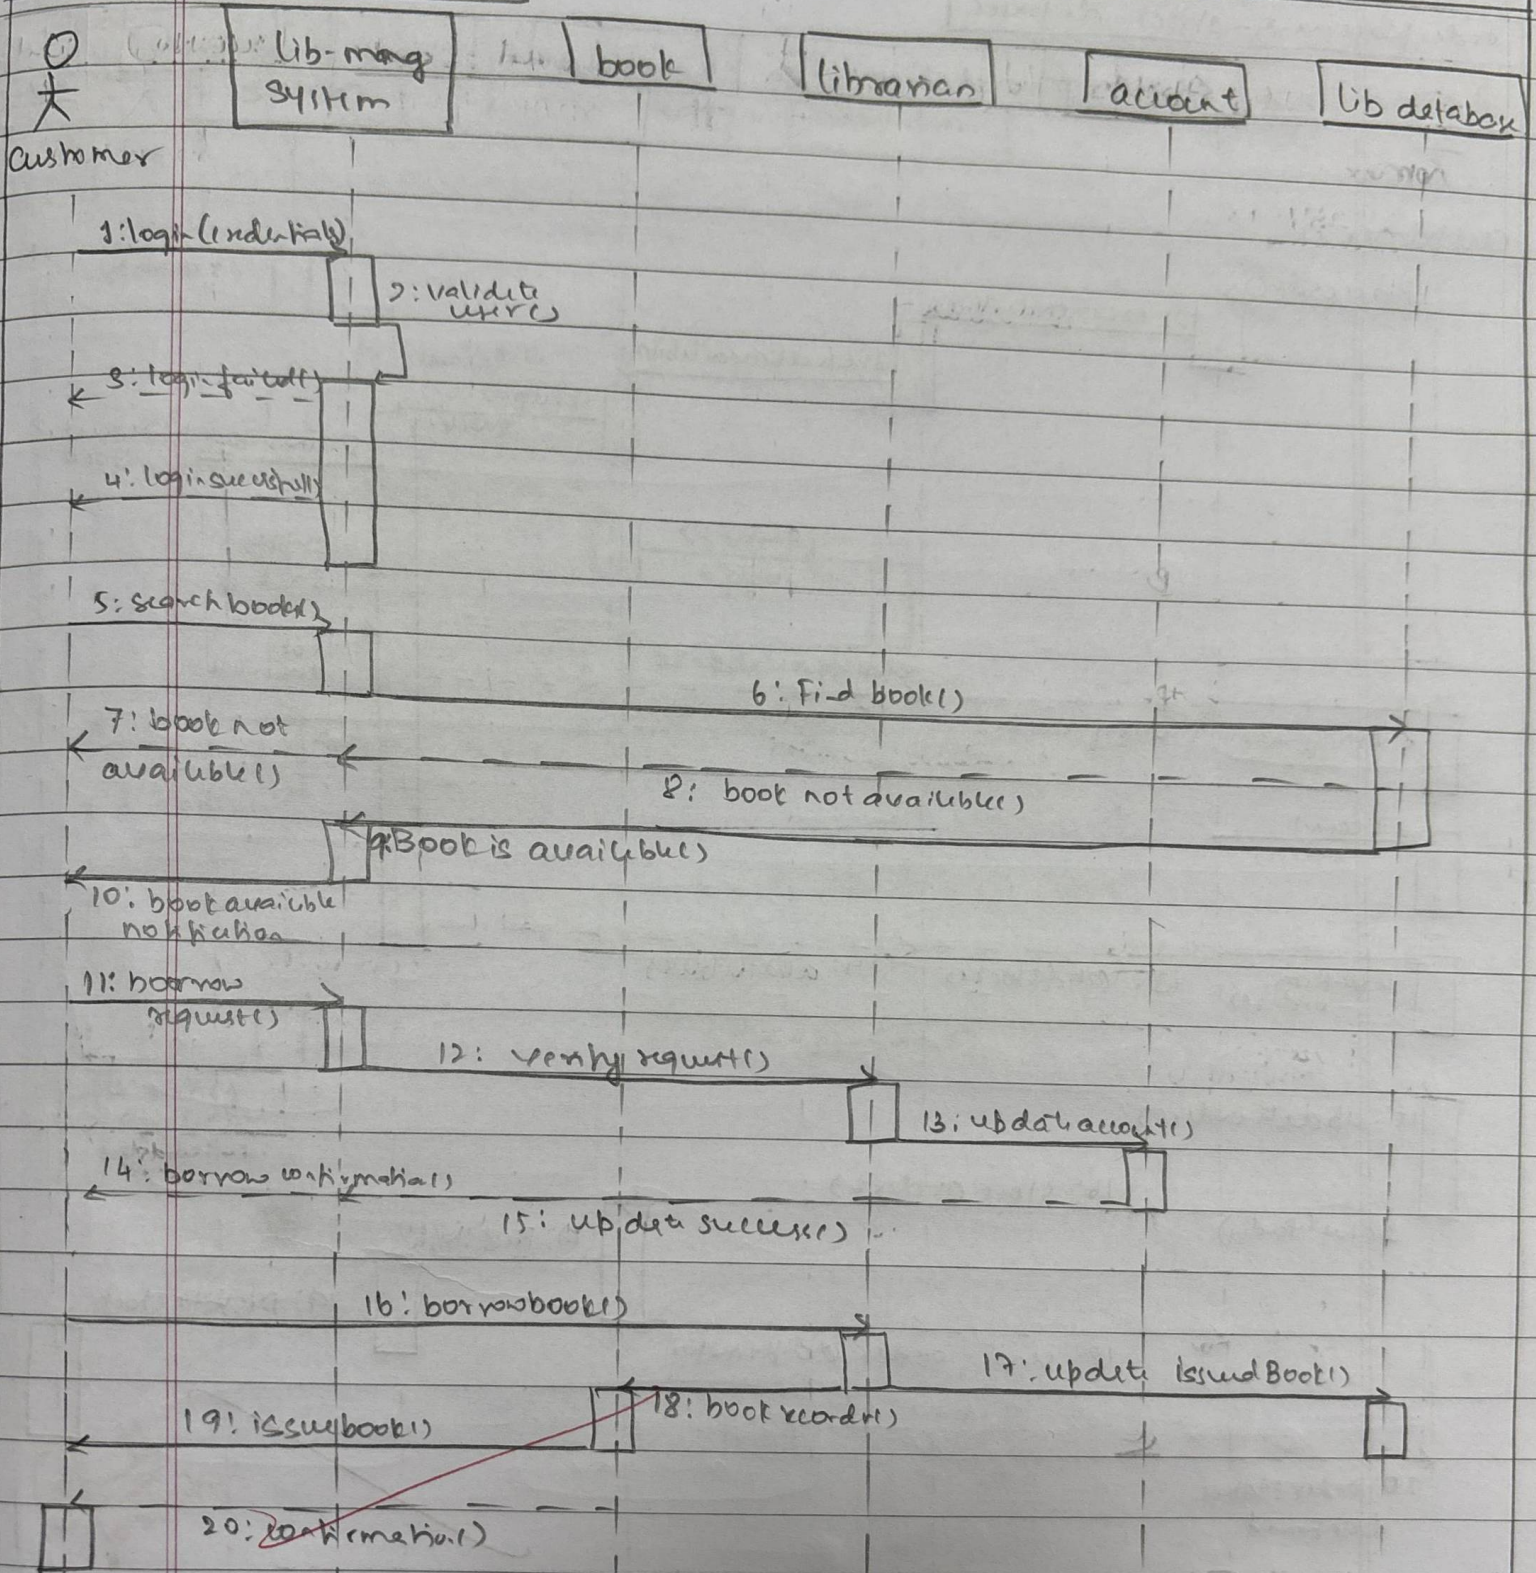 lib-mang
system
book
librarian
account
lib databax
customer
1:login(credentials)
2:validate
user()
3:login failed()
4:login sucessfully
5:search books()
6:Find book()
7:book not
available()
8: book not available()
9:Book is available()
10:book available
notification
11:borrow
request()
12: verify request()
13:update account()
14:borrow confirmation()
15:update success()
16:borrowbook()
17:update issuedBook()
18:book records()
19:issuebook()
20:confirmation()